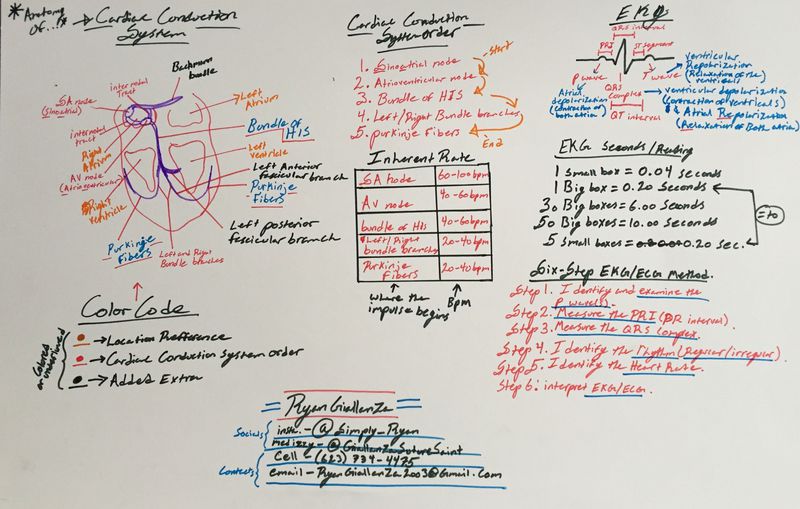 * Anatomy
Of...!* → Cardiac Conduction
System
Bachmann
bundle
internodal
Tract
SA node
(Sinoatrial)
internodal
tract
Right
Atrium
AV node
(Atrioventricular)
Right
ventricle
Purkinje
Fibers
Left and Right
Bundle branches
Left
Atrium
Bundle of
HIS
Left
ventricle
Left Anterior
fascicular branch
Purkinje
Fibers
Left posterior
fascicular branch
Color Code
Colored
or underlined
→ Location Refference
→ Cardiac Conduction System order
→ Added Extra
Cardiac Conduction
System order
1. Sinoatrial node
2. Atrioventricular node
3. Bundle of HIS
4. Left/Right Bundle branches
5. Purkinje Fibers
Start
End
Inherent Rate
SA Node 60-100bpm
AV node 40-60bpm
bundle of HIS 40-60bpm
Left/Right bundle branches 20-40bpm
Purkinje Fibers 20-40bpm
where the
impulse begins
Bpm
EKGs
QRS interval
PRI
ST segment
P wave
T wave
Atrial
depolarization
(Contraction of
both atria)
QRS
Complex
QT interval
ventricular
Repolarization
(Relaxation of the
ventricals)
ventricular depolarization
(contraction of ventricals)
& Atrial Repolarization
(Relaxation of Both atria)
EKG Seconds/Reading
1 small box = 0.04 seconds
1 Big box = 0.20 seconds
30 Big boxes = 6.00 Seconds
50 Big boxes = 10.00 Seconds
5 small boxes = 0.20 sec.
= to
Six-Step EKG/ECG Method.
Step 1. Identify and examine the
P wave(s).
Step 2. Measure the PRI (PR interval)
Step 3. Measure the QRS Complex.
Step 4. Identify the Rhythm (Regular/irregular)
Step 5. Identify the Heart Rate.
Step 6: interpret EKG/ECG.
= Ryan Giallanza =
Socials
insta. - @Simply_Ryan
medizzy - @GiallanzaSutureSaint
Contacts
Cell - (623) 734-4475
email - RyanGiallanza2003@Gmail.com